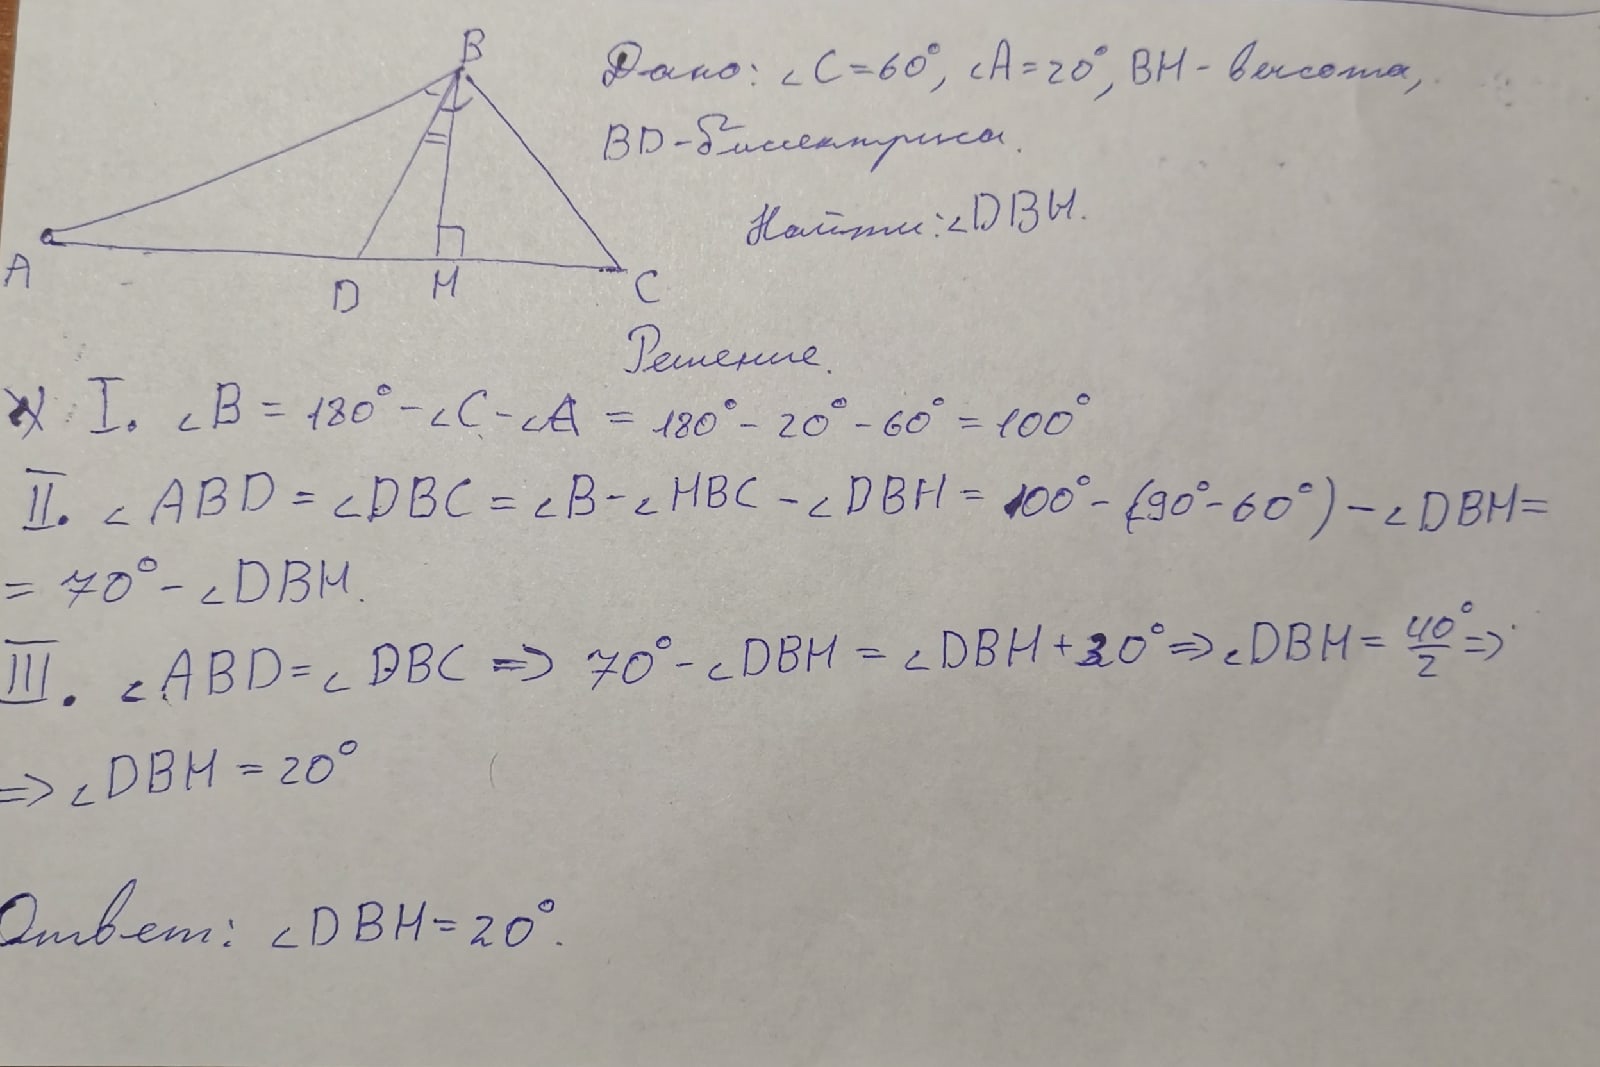 B
Дано: ∠C=60°, ∠A=20°, BH - высота,
BD - биссектриса.
Найти: ∠DBH.
A
D
H
C
Решение.
I. ∠B = 180° - ∠C - ∠A = 180° - 20° - 60° = 100°
II. ∠ABD = ∠DBC = ∠B - ∠HBC - ∠DBH = 100° - (90° - 60°) - ∠DBH =
= 70° - ∠DBH.
III. ∠ABD = ∠DBC => 70° - ∠DBH = ∠DBH + 30° => ∠DBH = 40°/2 =>
=> ∠DBH = 20°
Ответ: ∠DBH = 20°.